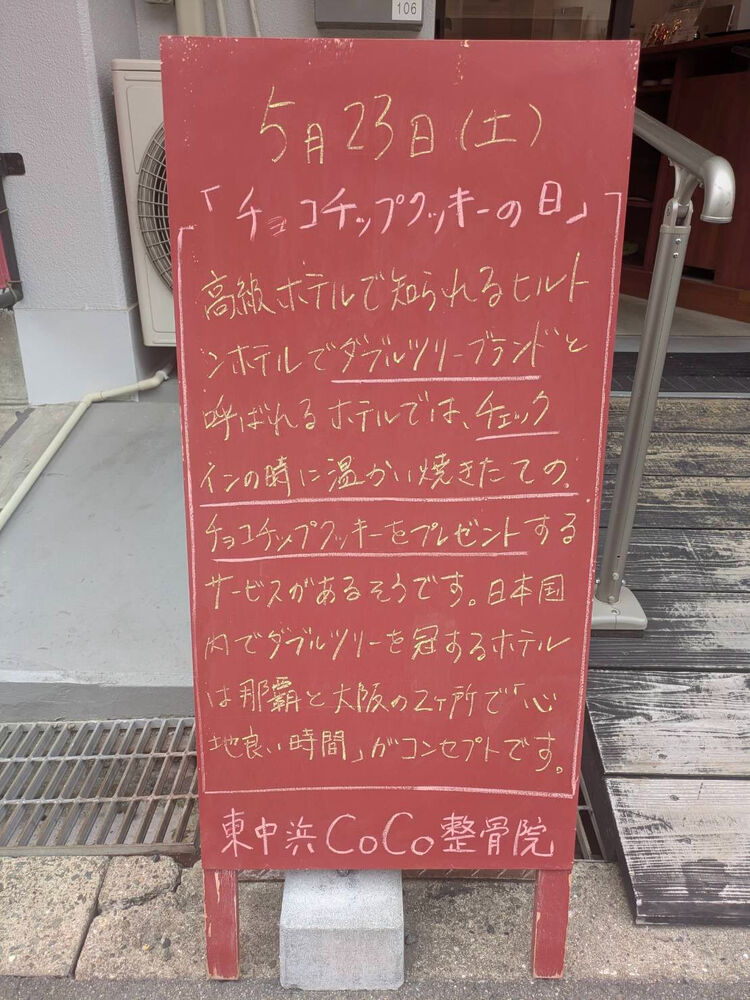 106
5月23日(土)
「チョコチップクッキーの日」
高級ホテルで知られるヒルト
ンホテルでダブルツリーブランドと
呼ばれるホテルでは、チェック
インの時に温かい焼きたての、
チョコチップクッキーをプレゼントする
サービスがあるそうです。日本国
内でダブルツリーを冠するホテル
は那覇と大阪の2ヶ所で「心
地良い時間」がコンセプトです。
東中浜CoCo整骨院